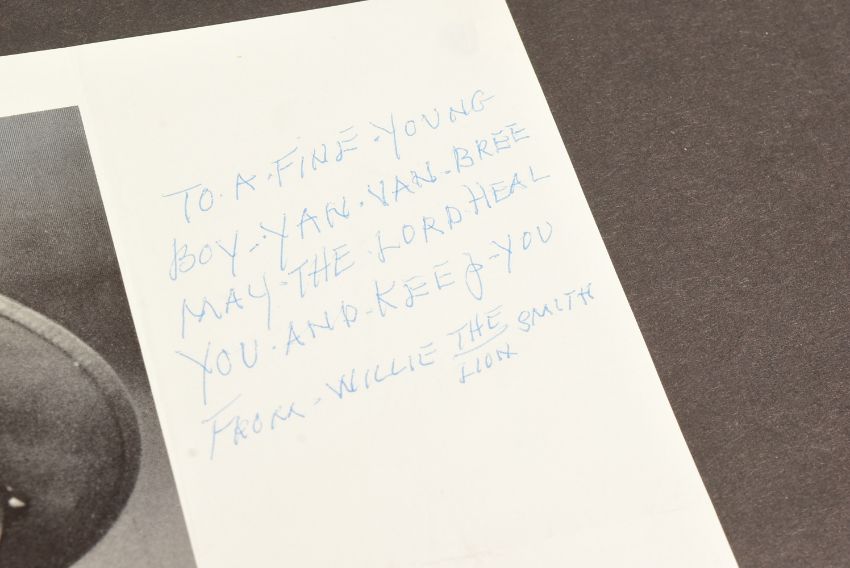 TO·A·FINE·YOUNG
BOY-YAN·VAN-BREE
MAY·THE·LORD HEAL
YOU·AND-KEEP-YOU
FROM-WILLIE THE SMITH
LION